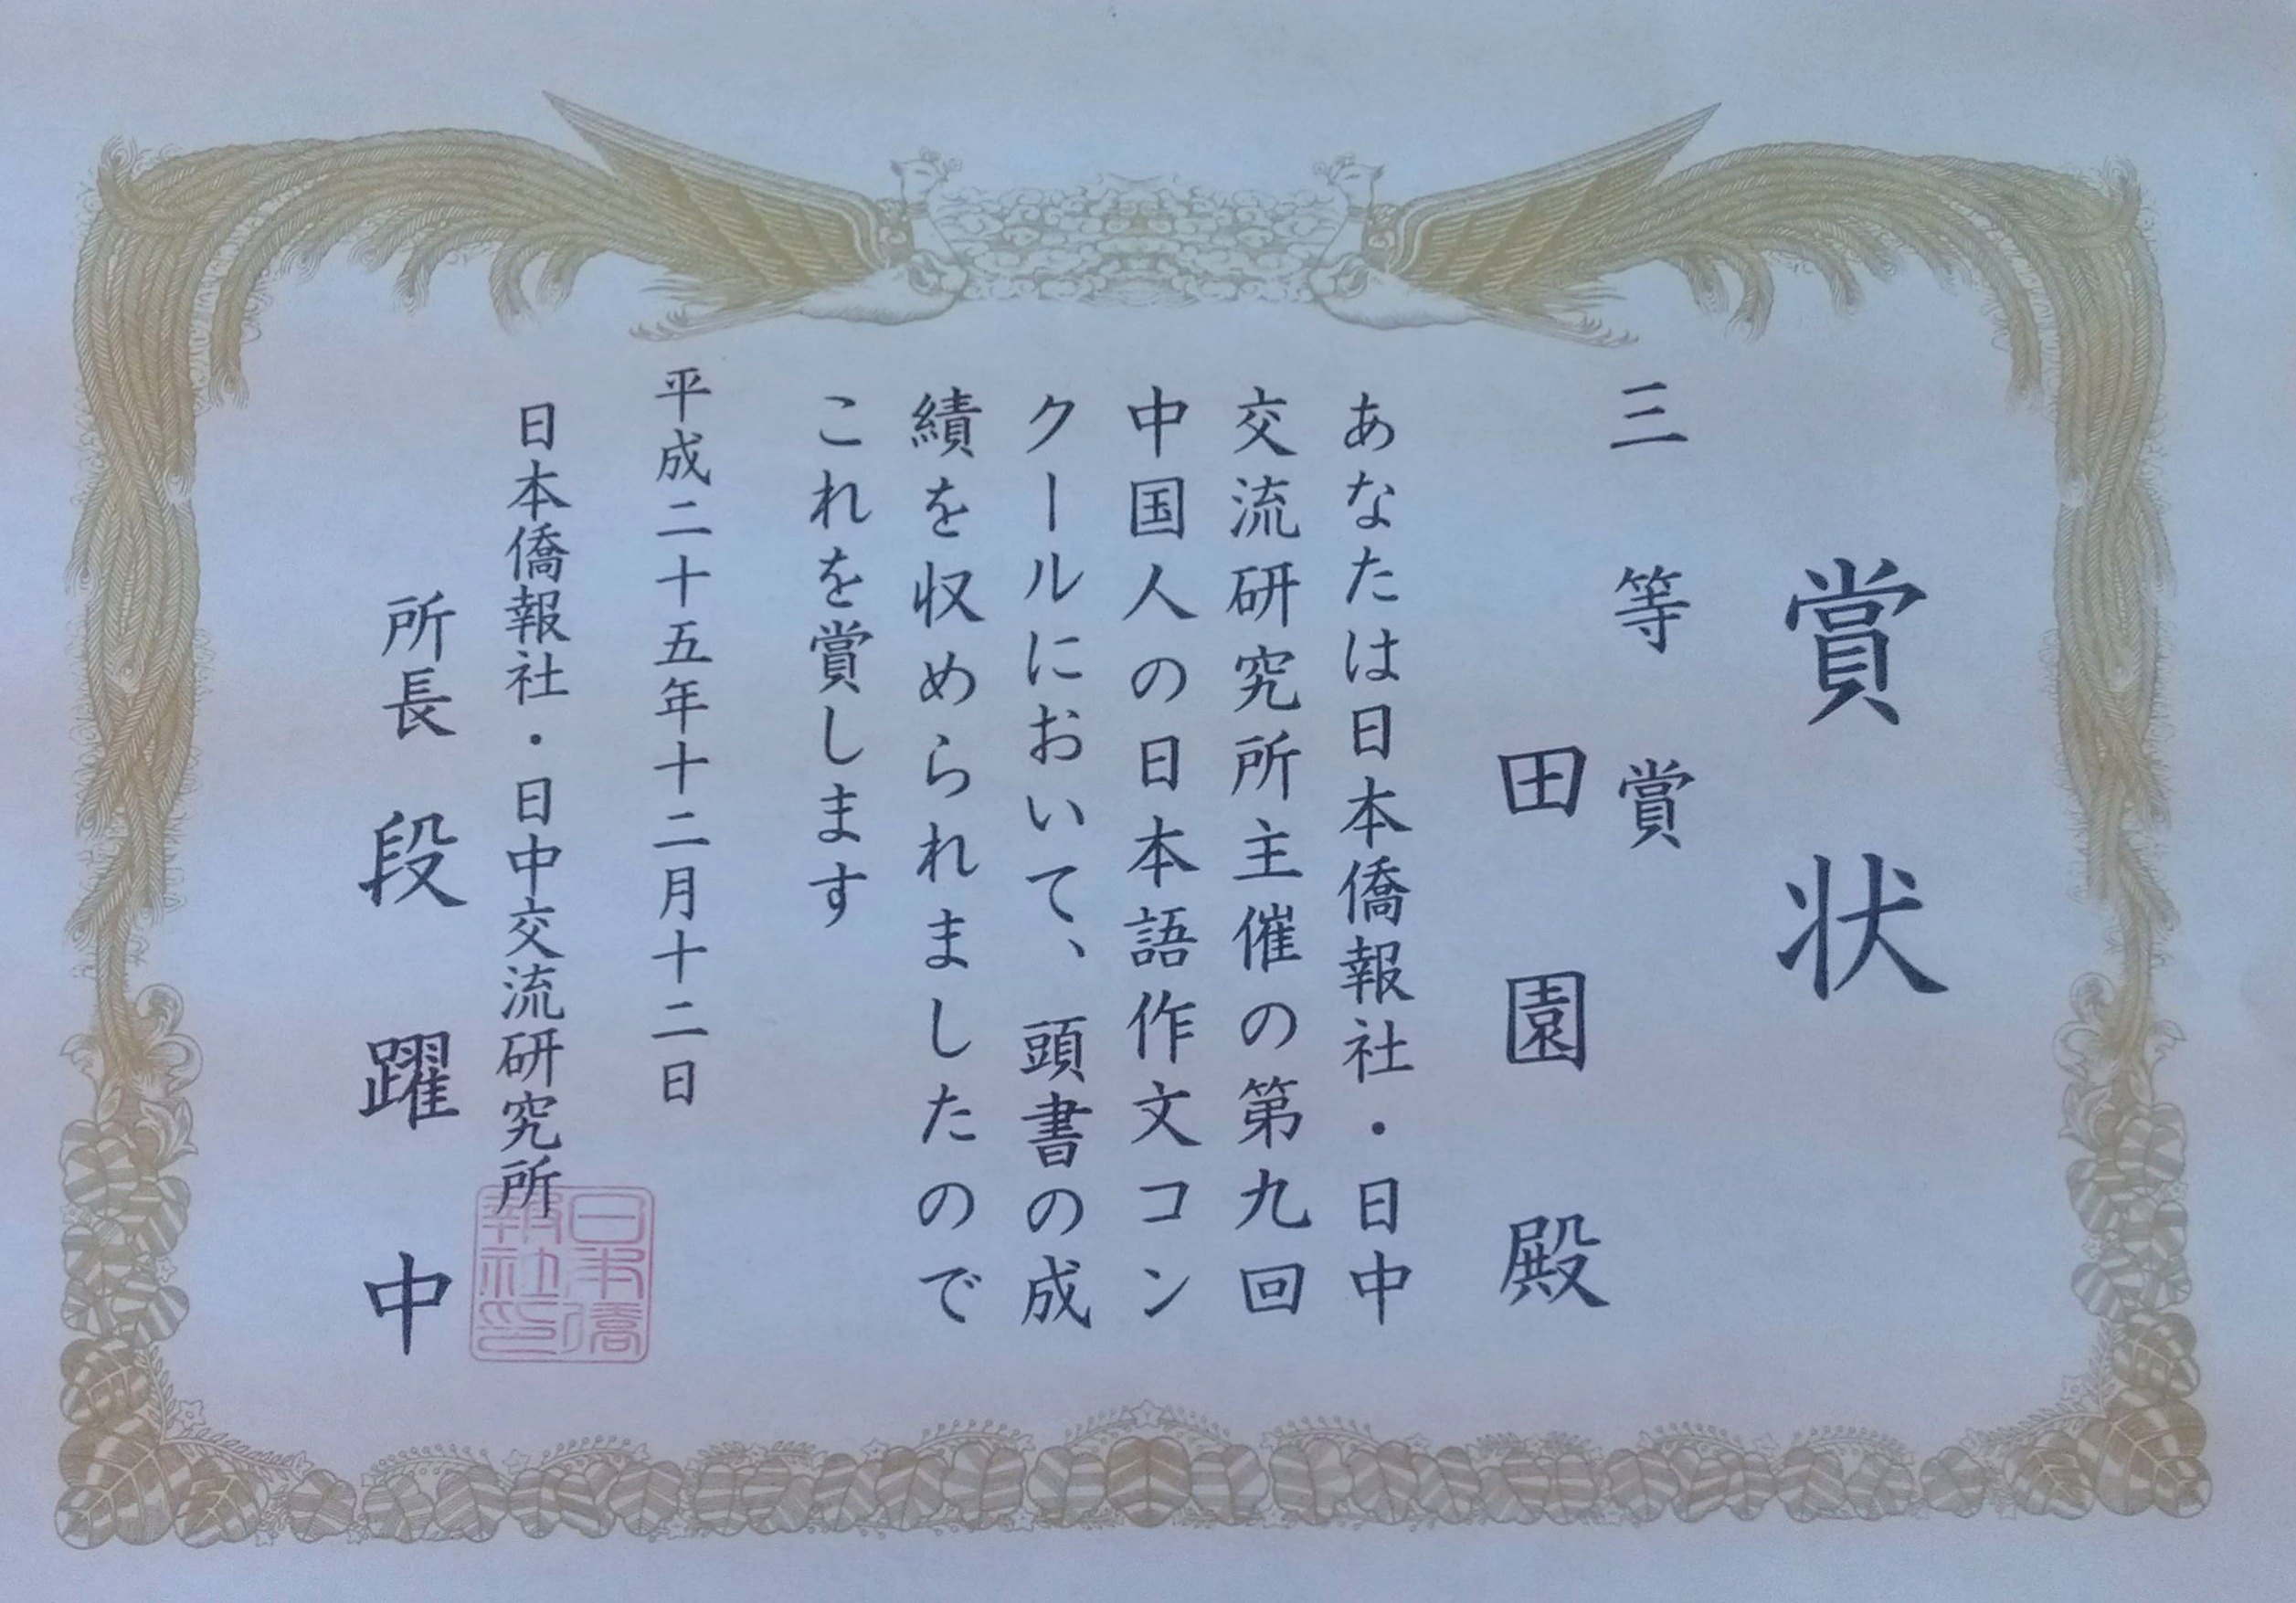 賞状
三等賞
田園園殿
あなたは日本僑報社・日中
交流研究所主催の第九回
中国人の日本語作文コン
クールにおいて、頭書の成
績を収められましたので
これを賞します
平成二十五年十二月十二日
日本僑報社・日中交流研究所
所長 段躍中
日本僑
報社印